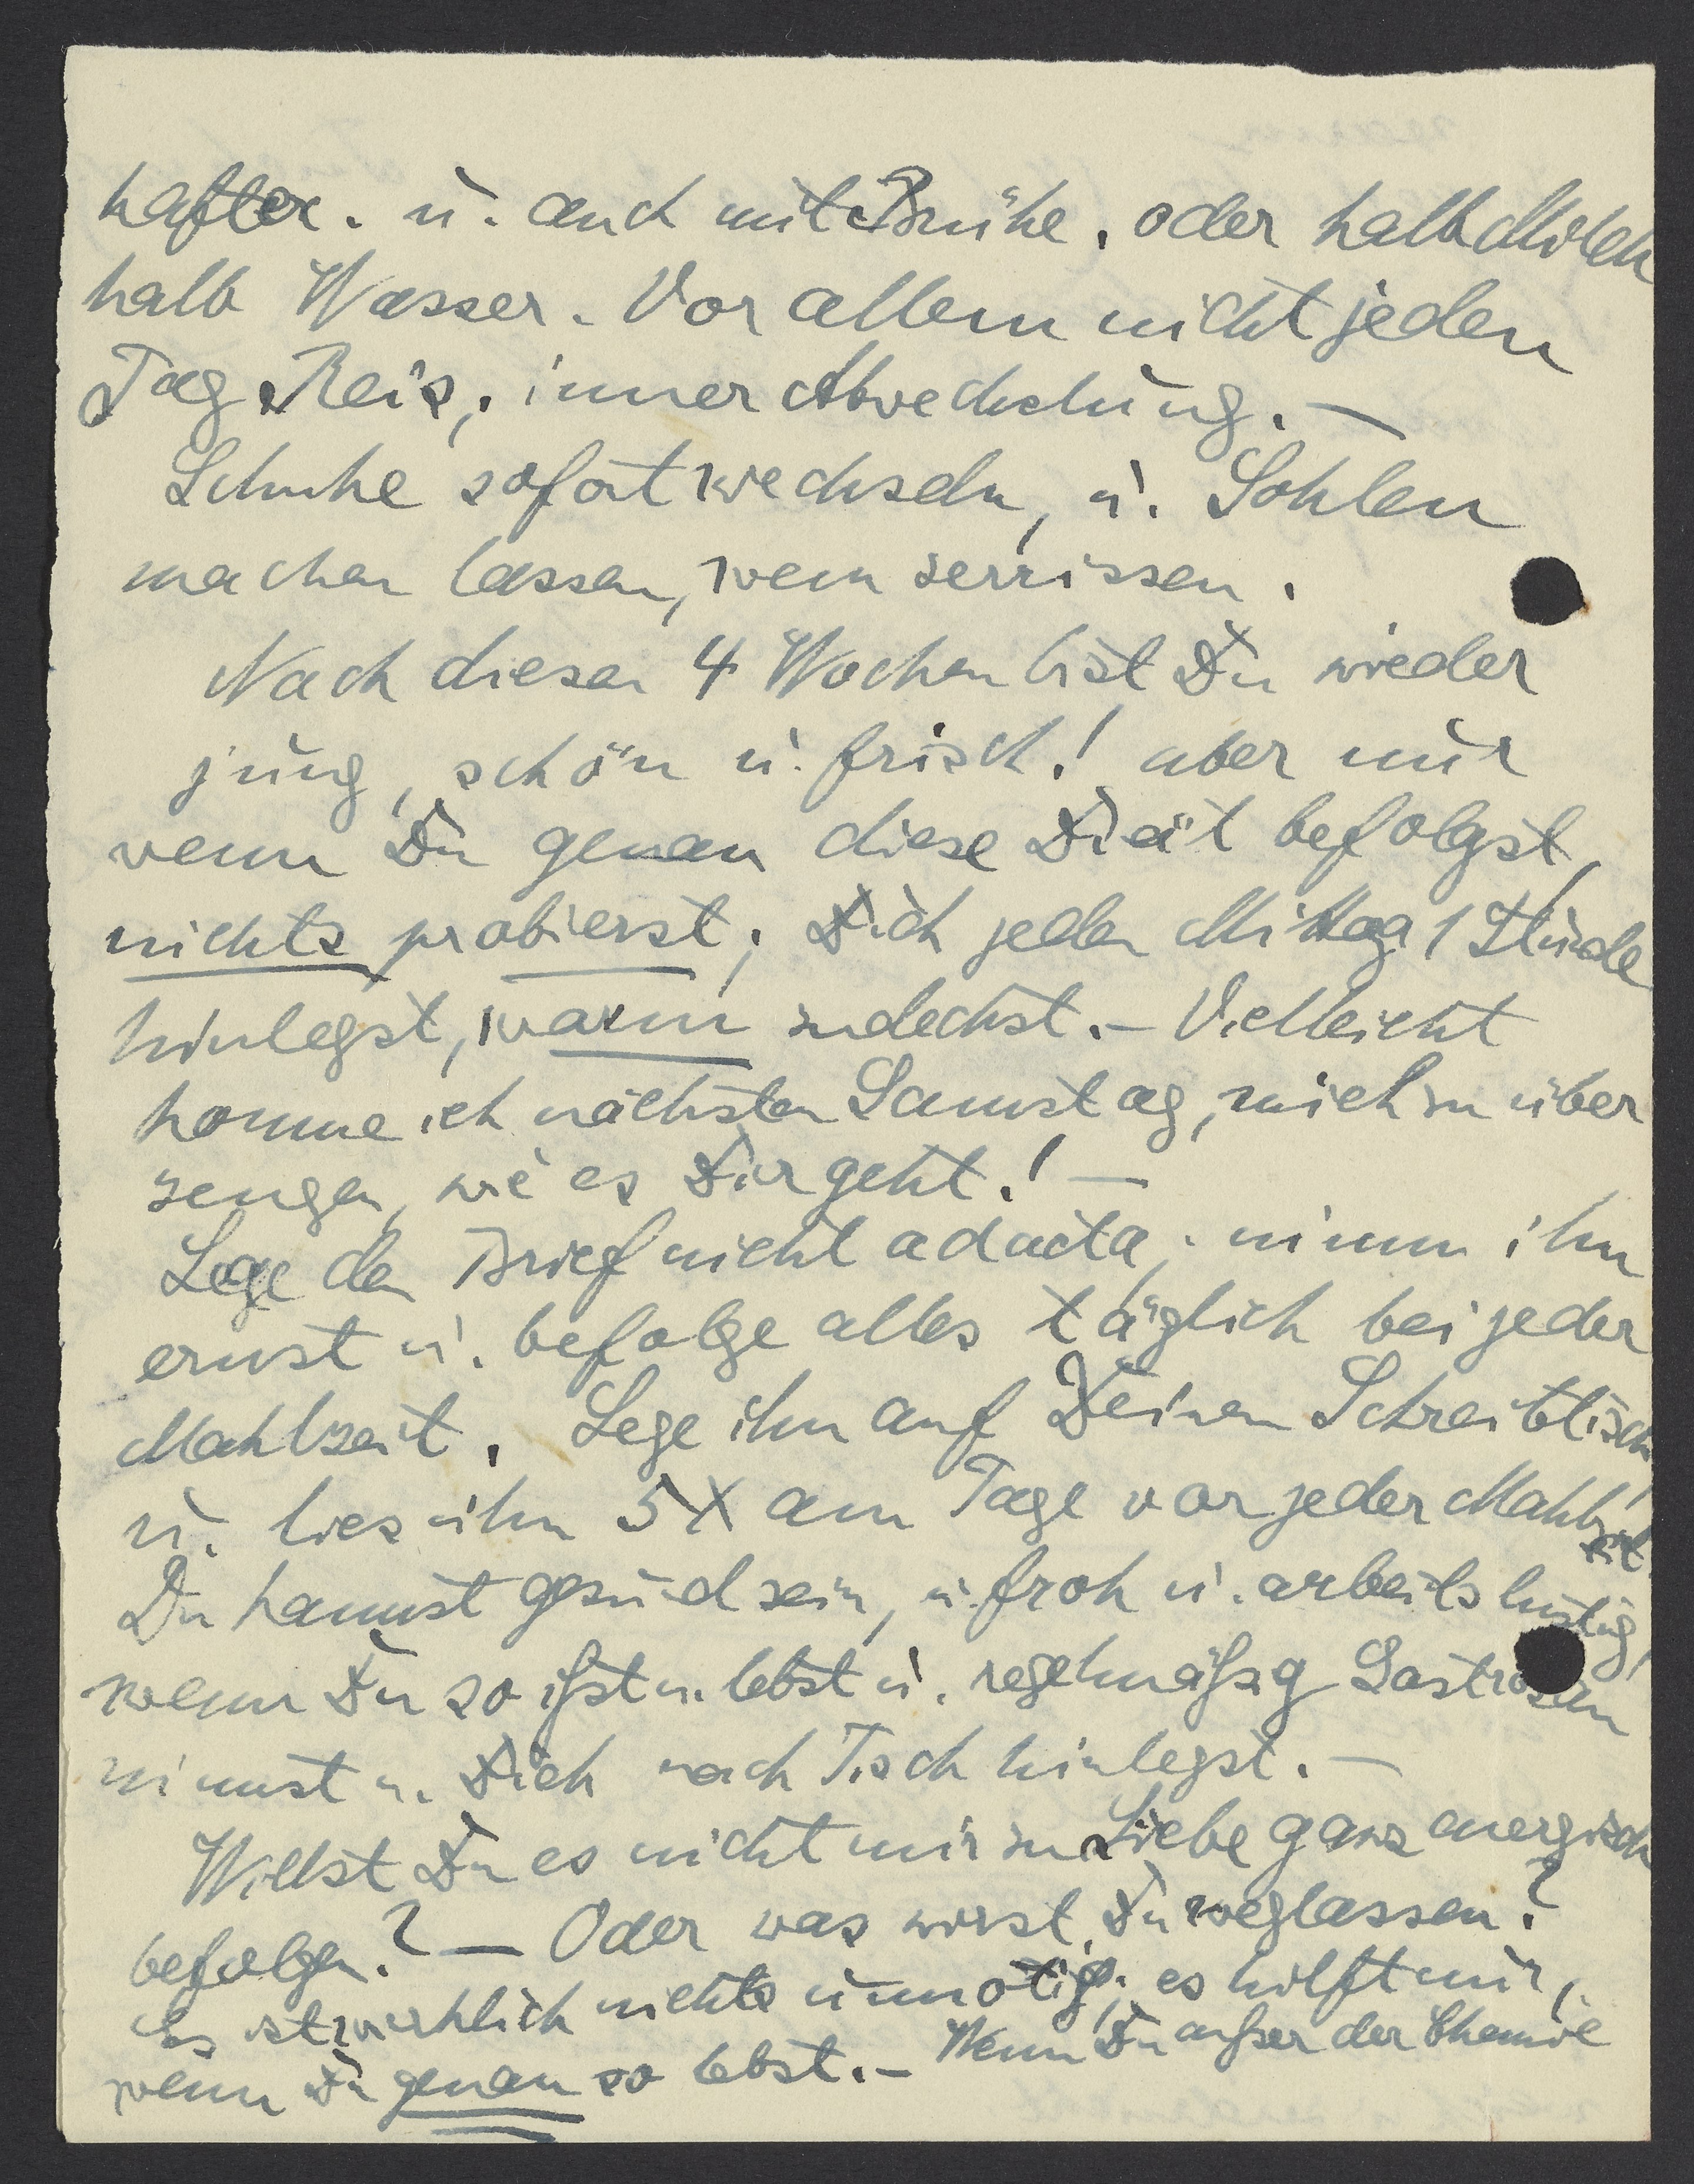 hafter. u. auch mit Brühe, oder halb Milch
halb Wasser. Vor allem nicht jeden
Tag Reis, immer Abwechslung. —
Schuhe sofort wechseln, u. Sohlen
machen lassen, wenn zerrissen.
Nach diesen 4 Wochen bist Du wieder
jung, schön u. frisch! aber nur
wenn Du genau diese Diät befolgst,
nichts probierst; Dich jeden Mittag 1 Stunde
hinlegst, warm zudeckst. — Vielleicht
komme ich nächsten Samstag, mich zu über
zeugen, wie es Dir geht! —
Lege den Brief nicht ad acta, nimm ihn
ernst u. befolge alles täglich bei jeder
Mahlzeit. Lege ihn auf Deinen Schreibtisch
u. lies ihn 5X am Tage vor jeder Mahlzeit!
Du kannst gesund sein, u. froh u. arbeitslustig,
wenn Du so ißt u. lebst u. regelmäßig Gastrosan
nimmst u. Dich nach Tisch hinlegst. —
Willst Du es nicht mir zu Liebe ganz energisch
befolgen? — Oder was wirst Du weglassen?
Es ist wirklich nichts unnötig; es hilft nur,
wenn Du genau so lebst. — Wenn Du außer der Chemie